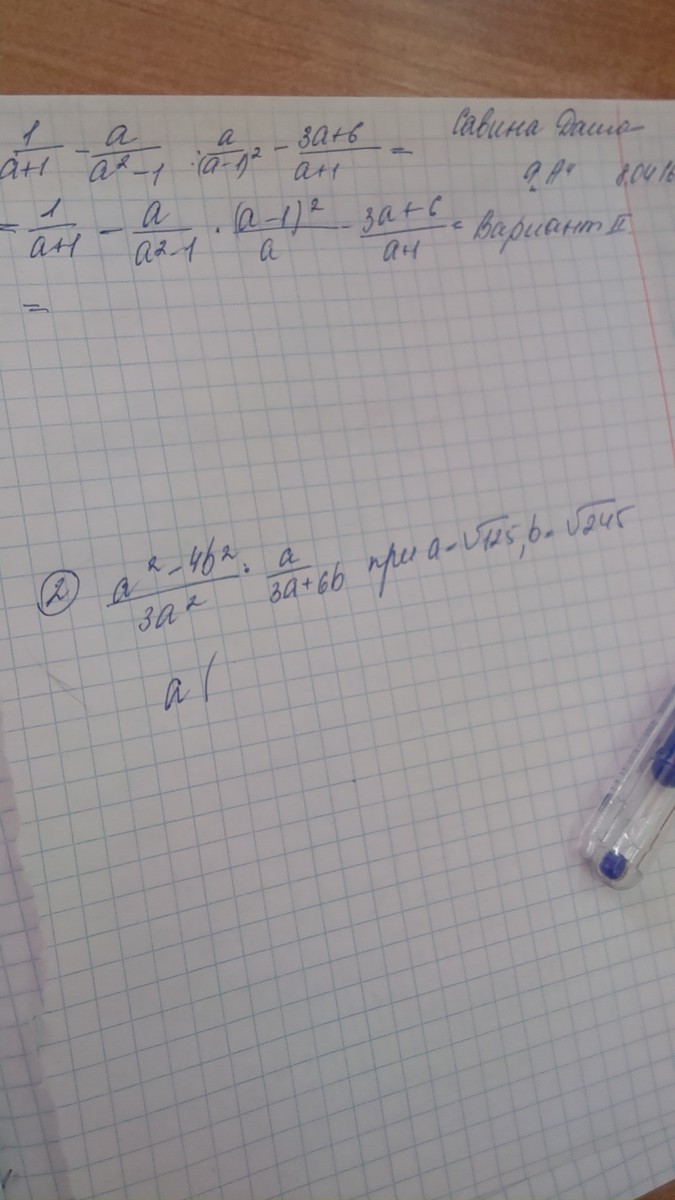 1/(a+1) - a/(a²-1) : a/(a-1)² - (3a+6)/(a+1) = Савина Даша
9 "А" 8.04.16
= 1/(a+1) - a/(a²-1) · (a-1)²/a - (3a+6)/(a+1) = Вариант II
=
② (a²-4b²)/(3a²) · a/(3a+6b) при a=√125, b=√245
a (